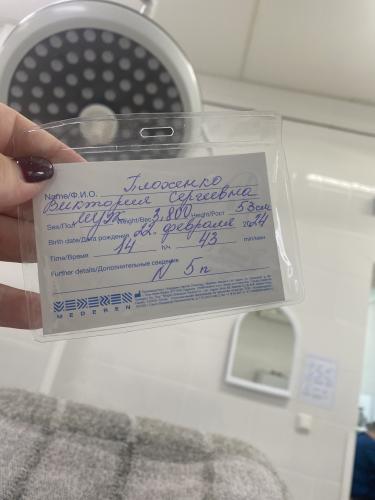 Name/Ф.И.О. Плохенко
Виктория Сергеевна
Sex/Пол муж Weight/Вес 3.800 Height/Рост 53 см
Birth date/Дата рождения 22. февраля 2024
Time/Время 14 h/ч. 43 min/мин
Further details/Дополнительные сведения
N 5 п
MEDEREN